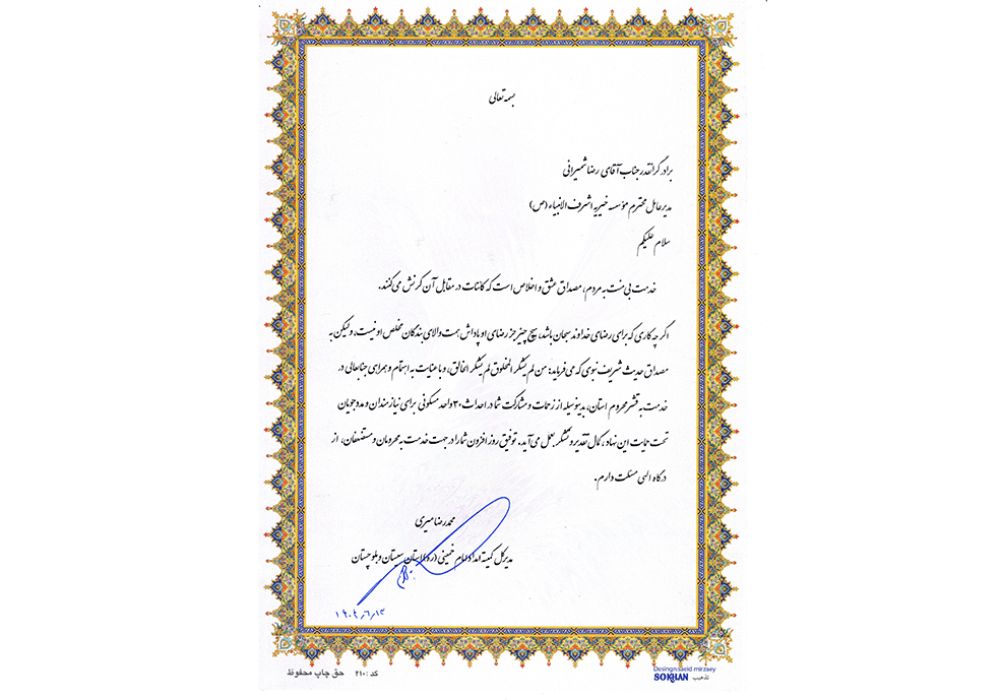 بسمه تعالی
برادر گرانقدر جناب آقای رضا شمیرانی
مدیرعامل محترم مؤسسه خیریه اشرف الانبیاء (ص)
سلام علیکم
خدمت بی منت به مردم، مصداق عشق و اخلاص است که کائنات در مقابل آن کرنش می کنند.
اگر چه کاری که برای رضای خداوند سبحان باشد، هیچ چیز جز رضای او پاداش همت والای بندگان مخلص او نیست، ولیکن به
مصداق حدیث شریف نبوی که می فرماید: من لم یشکر المخلوق لم یشکر الخالق، و با عنایت به اهتمام و همراهی جنابعالی در
خدمت به قشر محروم استان، بدینوسیله از زحمات و مشارکت شما در احداث ۳۰ واحد مسکونی برای نیازمندان و مددجویان
تحت حمایت این نهاد، کمال تقدیر و تشکر بعمل می آید. توفیق روز افزون شما را در جهت خدمت به محرومان و مستضعفان، از
درگاه الهی مسئلت دارم.
محمدرضا میری
مدیرکل کمیته امداد امام خمینی (ره) استان سیستان و بلوچستان
۱۴۰۲/۶/۱۳
کد : ۲۱۰ حق چاپ محفوظ
Design:saeid mirzaey
SOKHAN تذهیب